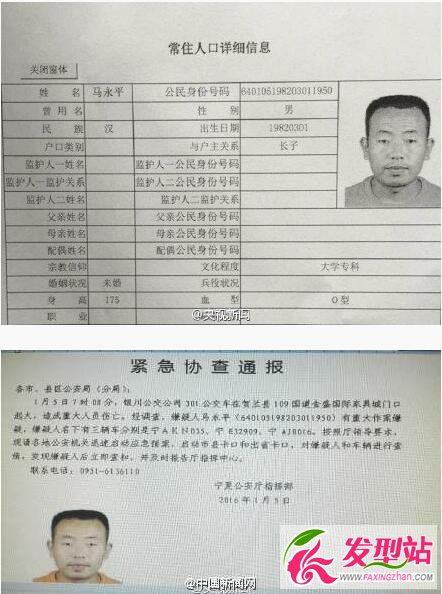 常住人口详细信息
关闭窗体
姓 名 马永平 公民身份号码 640105198203011950
曾 用 名 性 别 男
民 族 汉 出生日期 19820301
户口类别 与户主关系 长子
监护人一姓名 监护人一公民身份号码
监护人一监护关系 监护人二公民身份号码
监护人二姓名 监护人二监护关系
父亲姓名 父亲公民身份号码
母亲姓名 母亲公民身份号码
配偶姓名 配偶公民身份号码
宗教信仰 文化程度 大学专科
婚姻状况 未婚 兵役状况
身 高 175 血 型 O型
职 业
@央视新闻
紧急协查通报
各市、县区公安局（分局）：
1月5日7时08分，银川公交公司301公交车在贺兰县109国道金盛国际家具城门口
起火，造成重大人员伤亡。经调查，嫌疑人马永平（640103198203011950）有重大作案嫌
疑，嫌疑人名下有三辆车分别是宁AKN035、宁E32909、宁AJ0016。按照厅领导要求，
现请各地公安机关迅速启动应急预案，启动市县卡口和出省卡口，对嫌疑人和车辆进行查
缉，发现嫌疑人后立即查扣，并及时报告厅指挥中心。
联系电话：0951-6136110
宁夏公安厅指挥部
2016年1月5日
@中国新闻网
发型站
www.FAXINGZHAN.com